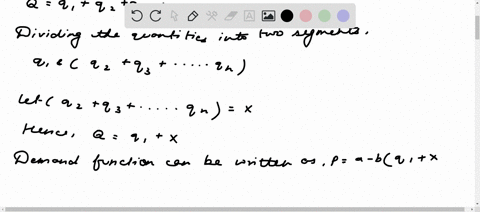 Q = q1 + q2 +
Dividing the quantities into two segments.
q1 & ( q2 + q3 + ..... qn )
let ( q2 + q3 + ..... qn ) = x
Hence, Q = q1 + x
Demand function can be written as, P = a - b ( q1 + x